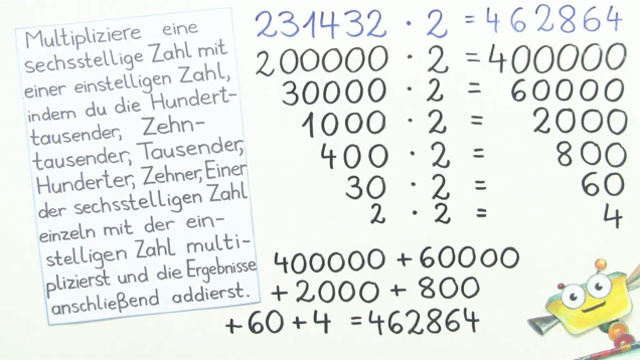 Multipliziere eine
sechsstellige Zahl mit
einer einstelligen Zahl,
indem du die Hundert-
tausender, Zehn-
tausender, Tausender,
Hunderter, Zehner, Einer
der sechsstelligen Zahl
einzeln mit der ein-
stelligen Zahl multi-
plizierst und die Ergebnisse
anschließend addierst.
231432 · 2 = 462864
200000 · 2 = 400000
30000 · 2 = 60000
1000 · 2 = 2000
400 · 2 = 800
30 · 2 = 60
2 · 2 = 4
400000 + 60000
+ 2000 + 800
+ 60 + 4 = 462864